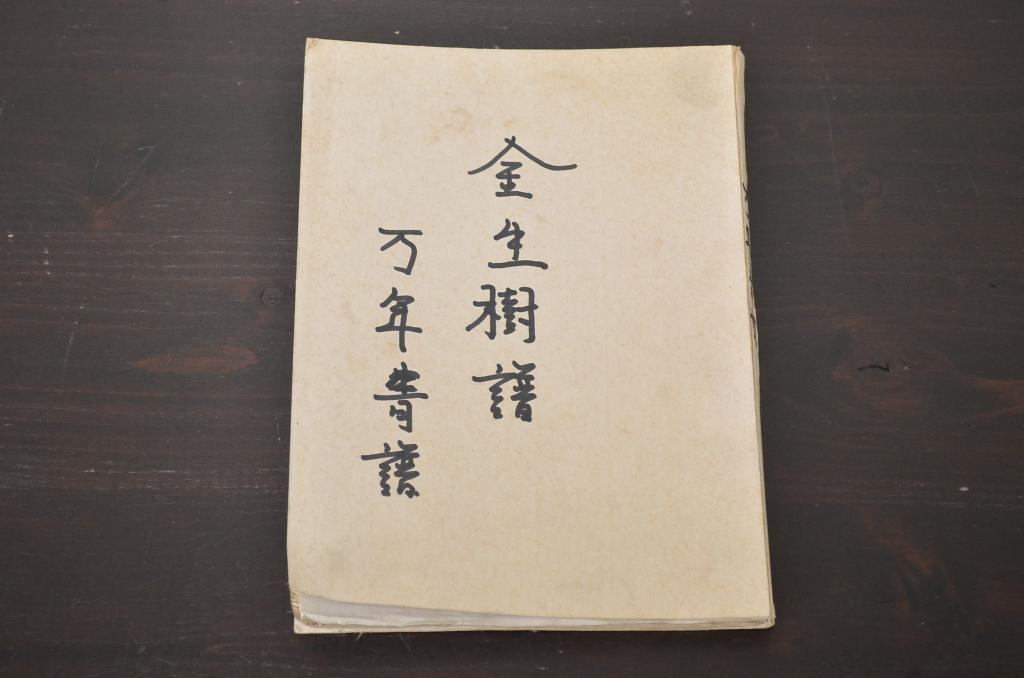 金生樹譜
万年青譜